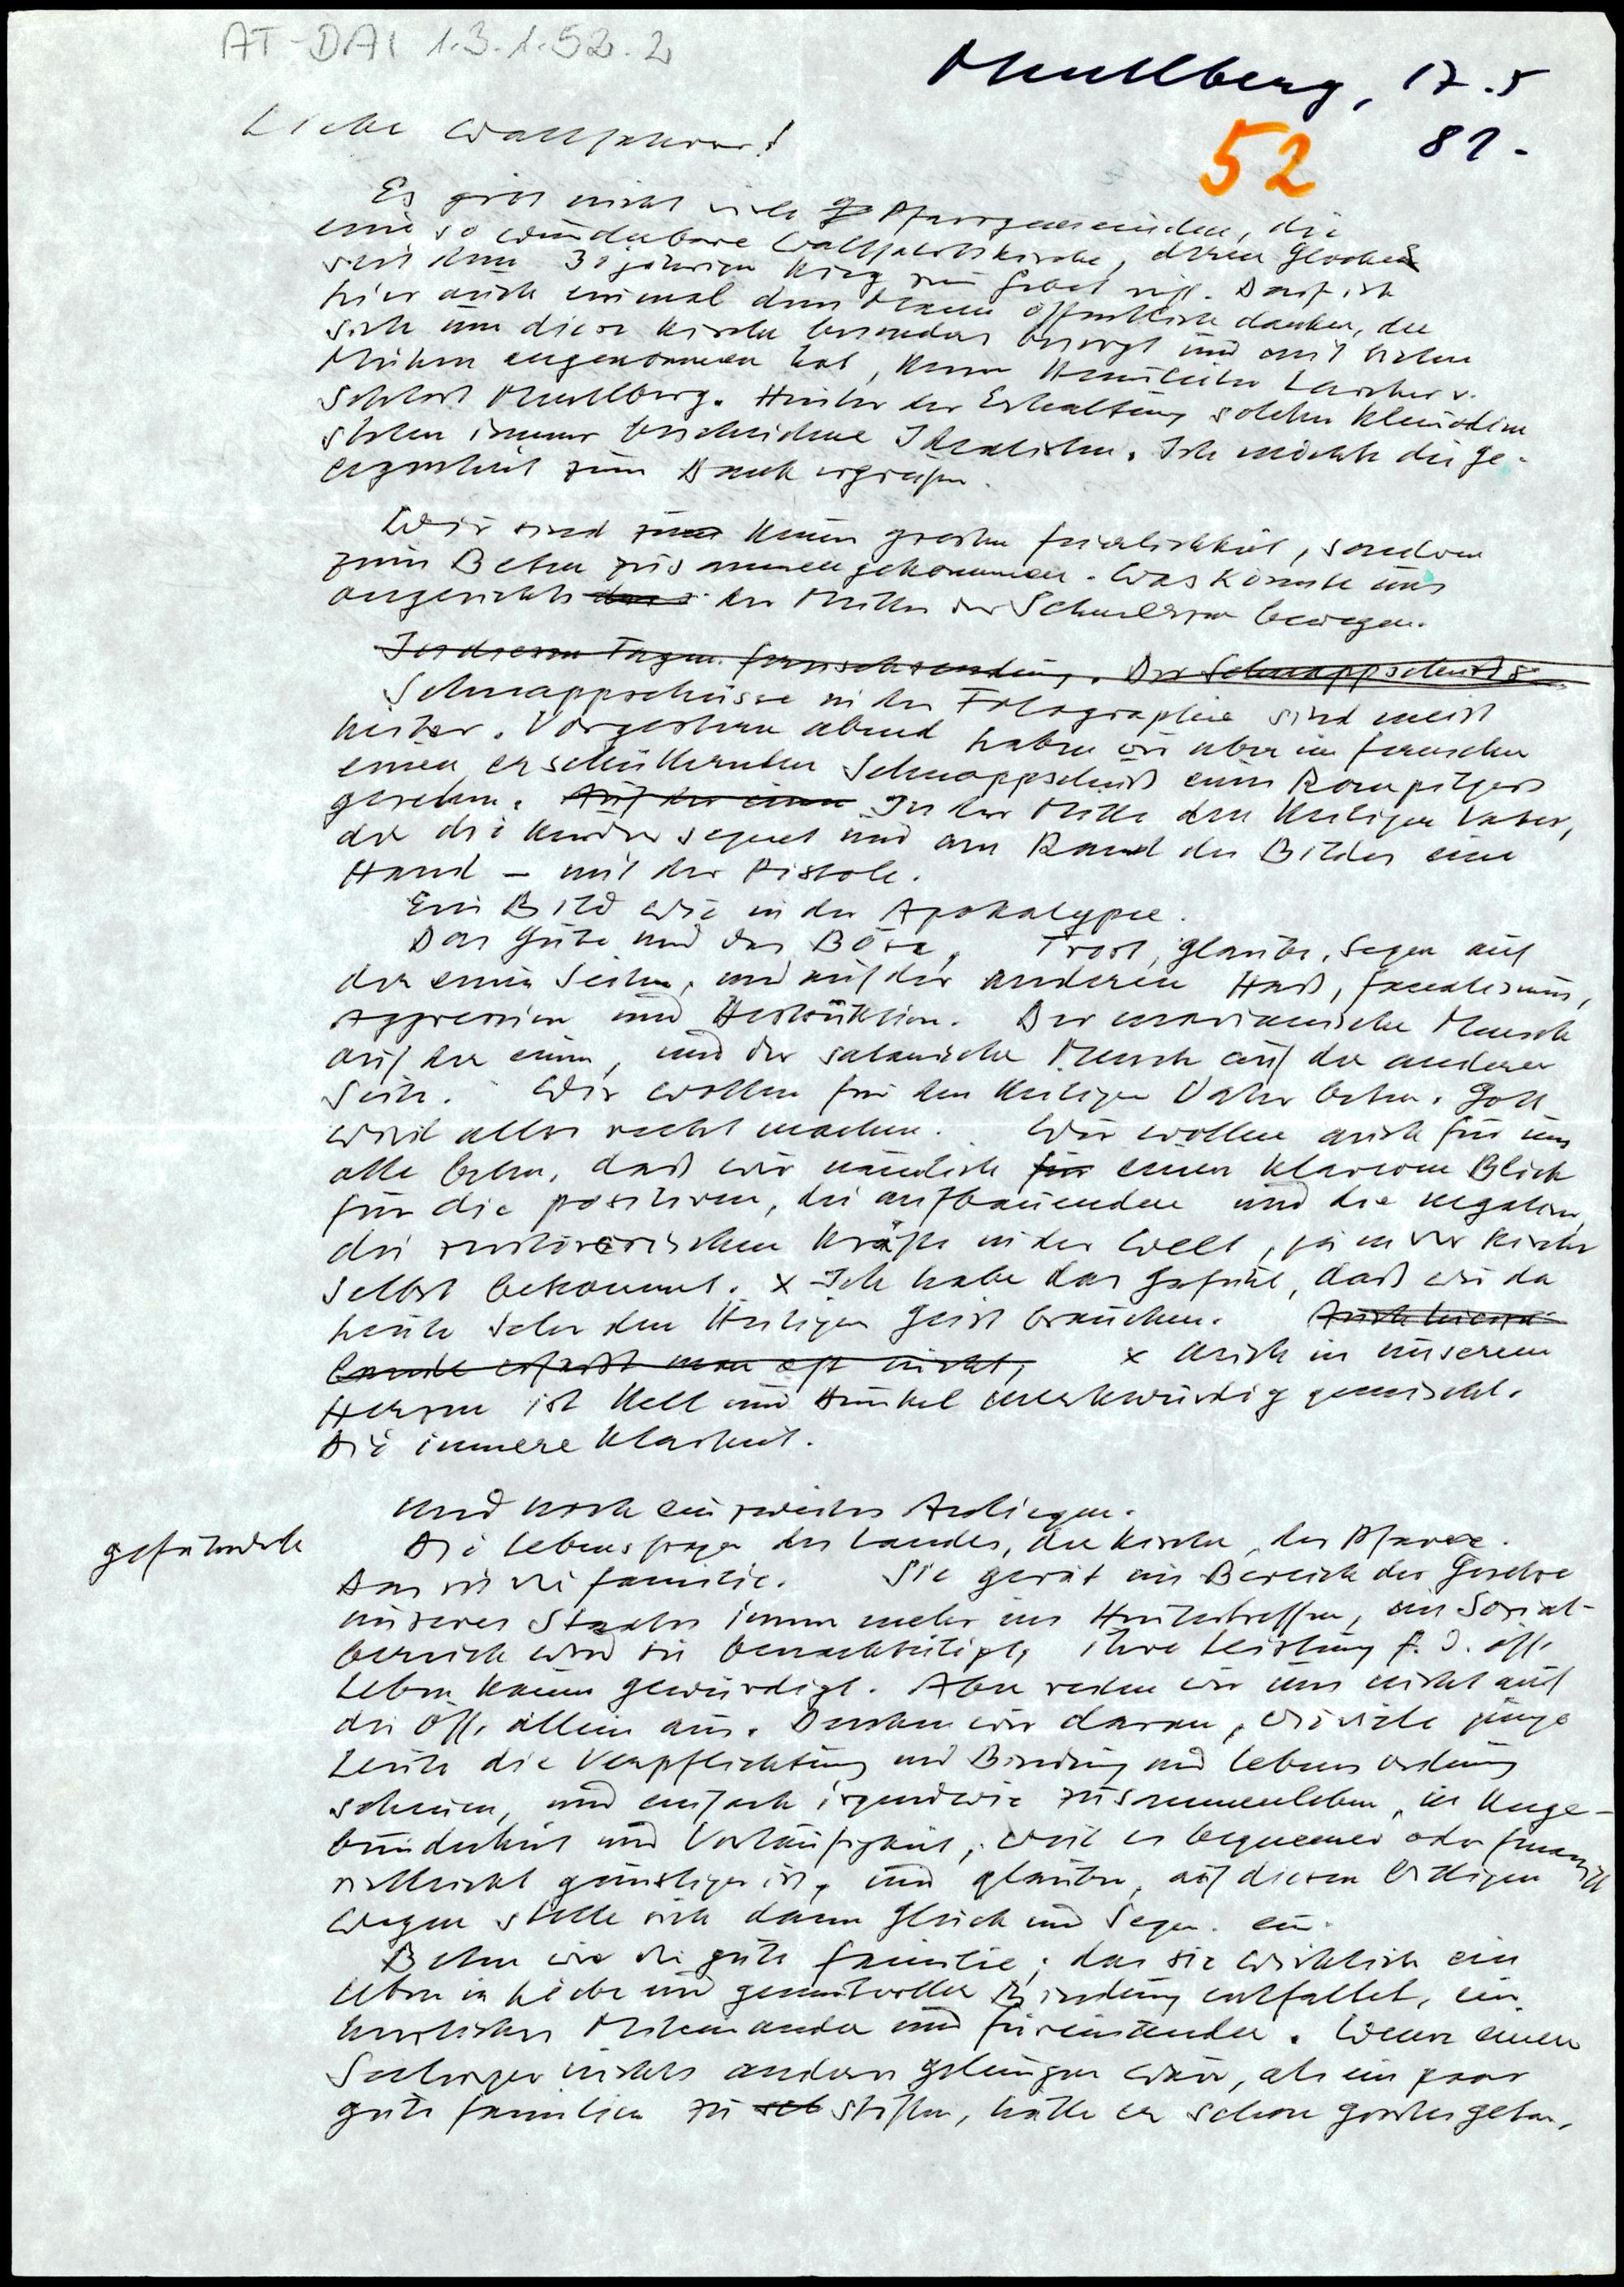 AT-DAI 1.3.1.52.2
17.5
52
81.
Liebe Wallfahrer!
Es gibt nicht viele Pfarrgemeinden, die
eine so wunderbare Wallfahrtskirche, deren Glocken
seit dem 30 jährigen Krieg zum Gebet ruft. Darf ich
hier auch einmal dem Manne öffentlich danken, der
sich um diese Kirche besonders besorgt und mit vielen
Mühen angenommen hat, Herrn v.
Schloss. Hinter der Erhaltung solcher Kleinodien
stehen immer bescheidene Idealisten. Ich möchte die Ge-
legenheit zum Dank ergreifen.
Wir sind zu keiner großen Feierlichkeit, sondern
zum Beten zusammengekommen. Was könnte uns
angesichts der Mutter der Schmerzen bewegen.
In diesen Tagen Fernsehsendung. Der Schnappschuss
Schnappschüsse in der Fotographie sind meist
heiter. Vorgestern abend haben wir aber im Fernsehen
einen erschütternden Schnappschuß eines Rompilgers
gesehen. Auf der einen In der Mitte den Heiligen Vater,
der die Kinder segnet und am Rand des Bildes eine
Hand – mit der Pistole.
Ein Bild wie in der Apokalypse.
Das Gute und das Böse, Trost, Glaube, Segen auf
der einen Seite, und auf der anderen Haß, Fanatismus,
Aggression und Destruktion. Der marianische Mensch
auf der einen, und der satanische Mensch auf der anderen
Seite. Wir wollen für den Heiligen Vater beten. Gott
wird alles recht machen. Wir wollen auch für uns
alle beten, daß wir nämlich für einen klareren Blick
für die positiven, die aufbauenden und die negativen,
die Kräfte in der Welt, ja in der Kirche
selbst bekommen. x Ich habe das Gefühl, daß wir da
heute sehr den Heiligen Geist brauchen. Auch hierzu-
lande erfaßt man oft nicht, x Auch in unserem
Herzen ist Hell und Dunkel merkwürdig gemischt.
Die innere Klarheit.
Und noch ein zweites Anliegen.
gefährdete
Die Lebensfrage des Landes, der Kirche, der Pfarre.
Das ist die Familie. Sie gerät im Bereich der Gesetze
unseres Staates immer mehr ins Hintertreffen, im Sozial-
bereich wird sie benachteiligt, ihre Leistung f. d. öff.
Leben kaum gewürdigt. Aber reden wir uns nicht auf
die Öff. allein aus. Denken wir daran, wieviele junge
Leute die Verpflichtung und Bindung und Lebensordnung
scheuen, und einfach irgendwie zusammenleben, in Unge-
bundenheit und Vorläufigkeit, weil es bequemer oder finanziell
vielleicht günstiger ist, und glauben, auf diesen billigen
Wegen stelle sich dann Glück und Segen ein.
Beten wir um die gute Familie; das sie wirklich ein
Leben in Liebe und gemütvoller Bindung entfaltet, ein
herzliches Miteinander und Füreinander. Wenn einem
Seelsorger nichts anderes gelungen wäre, als ein paar
gute Familien zu stiften, hätte er schon Großes getan,